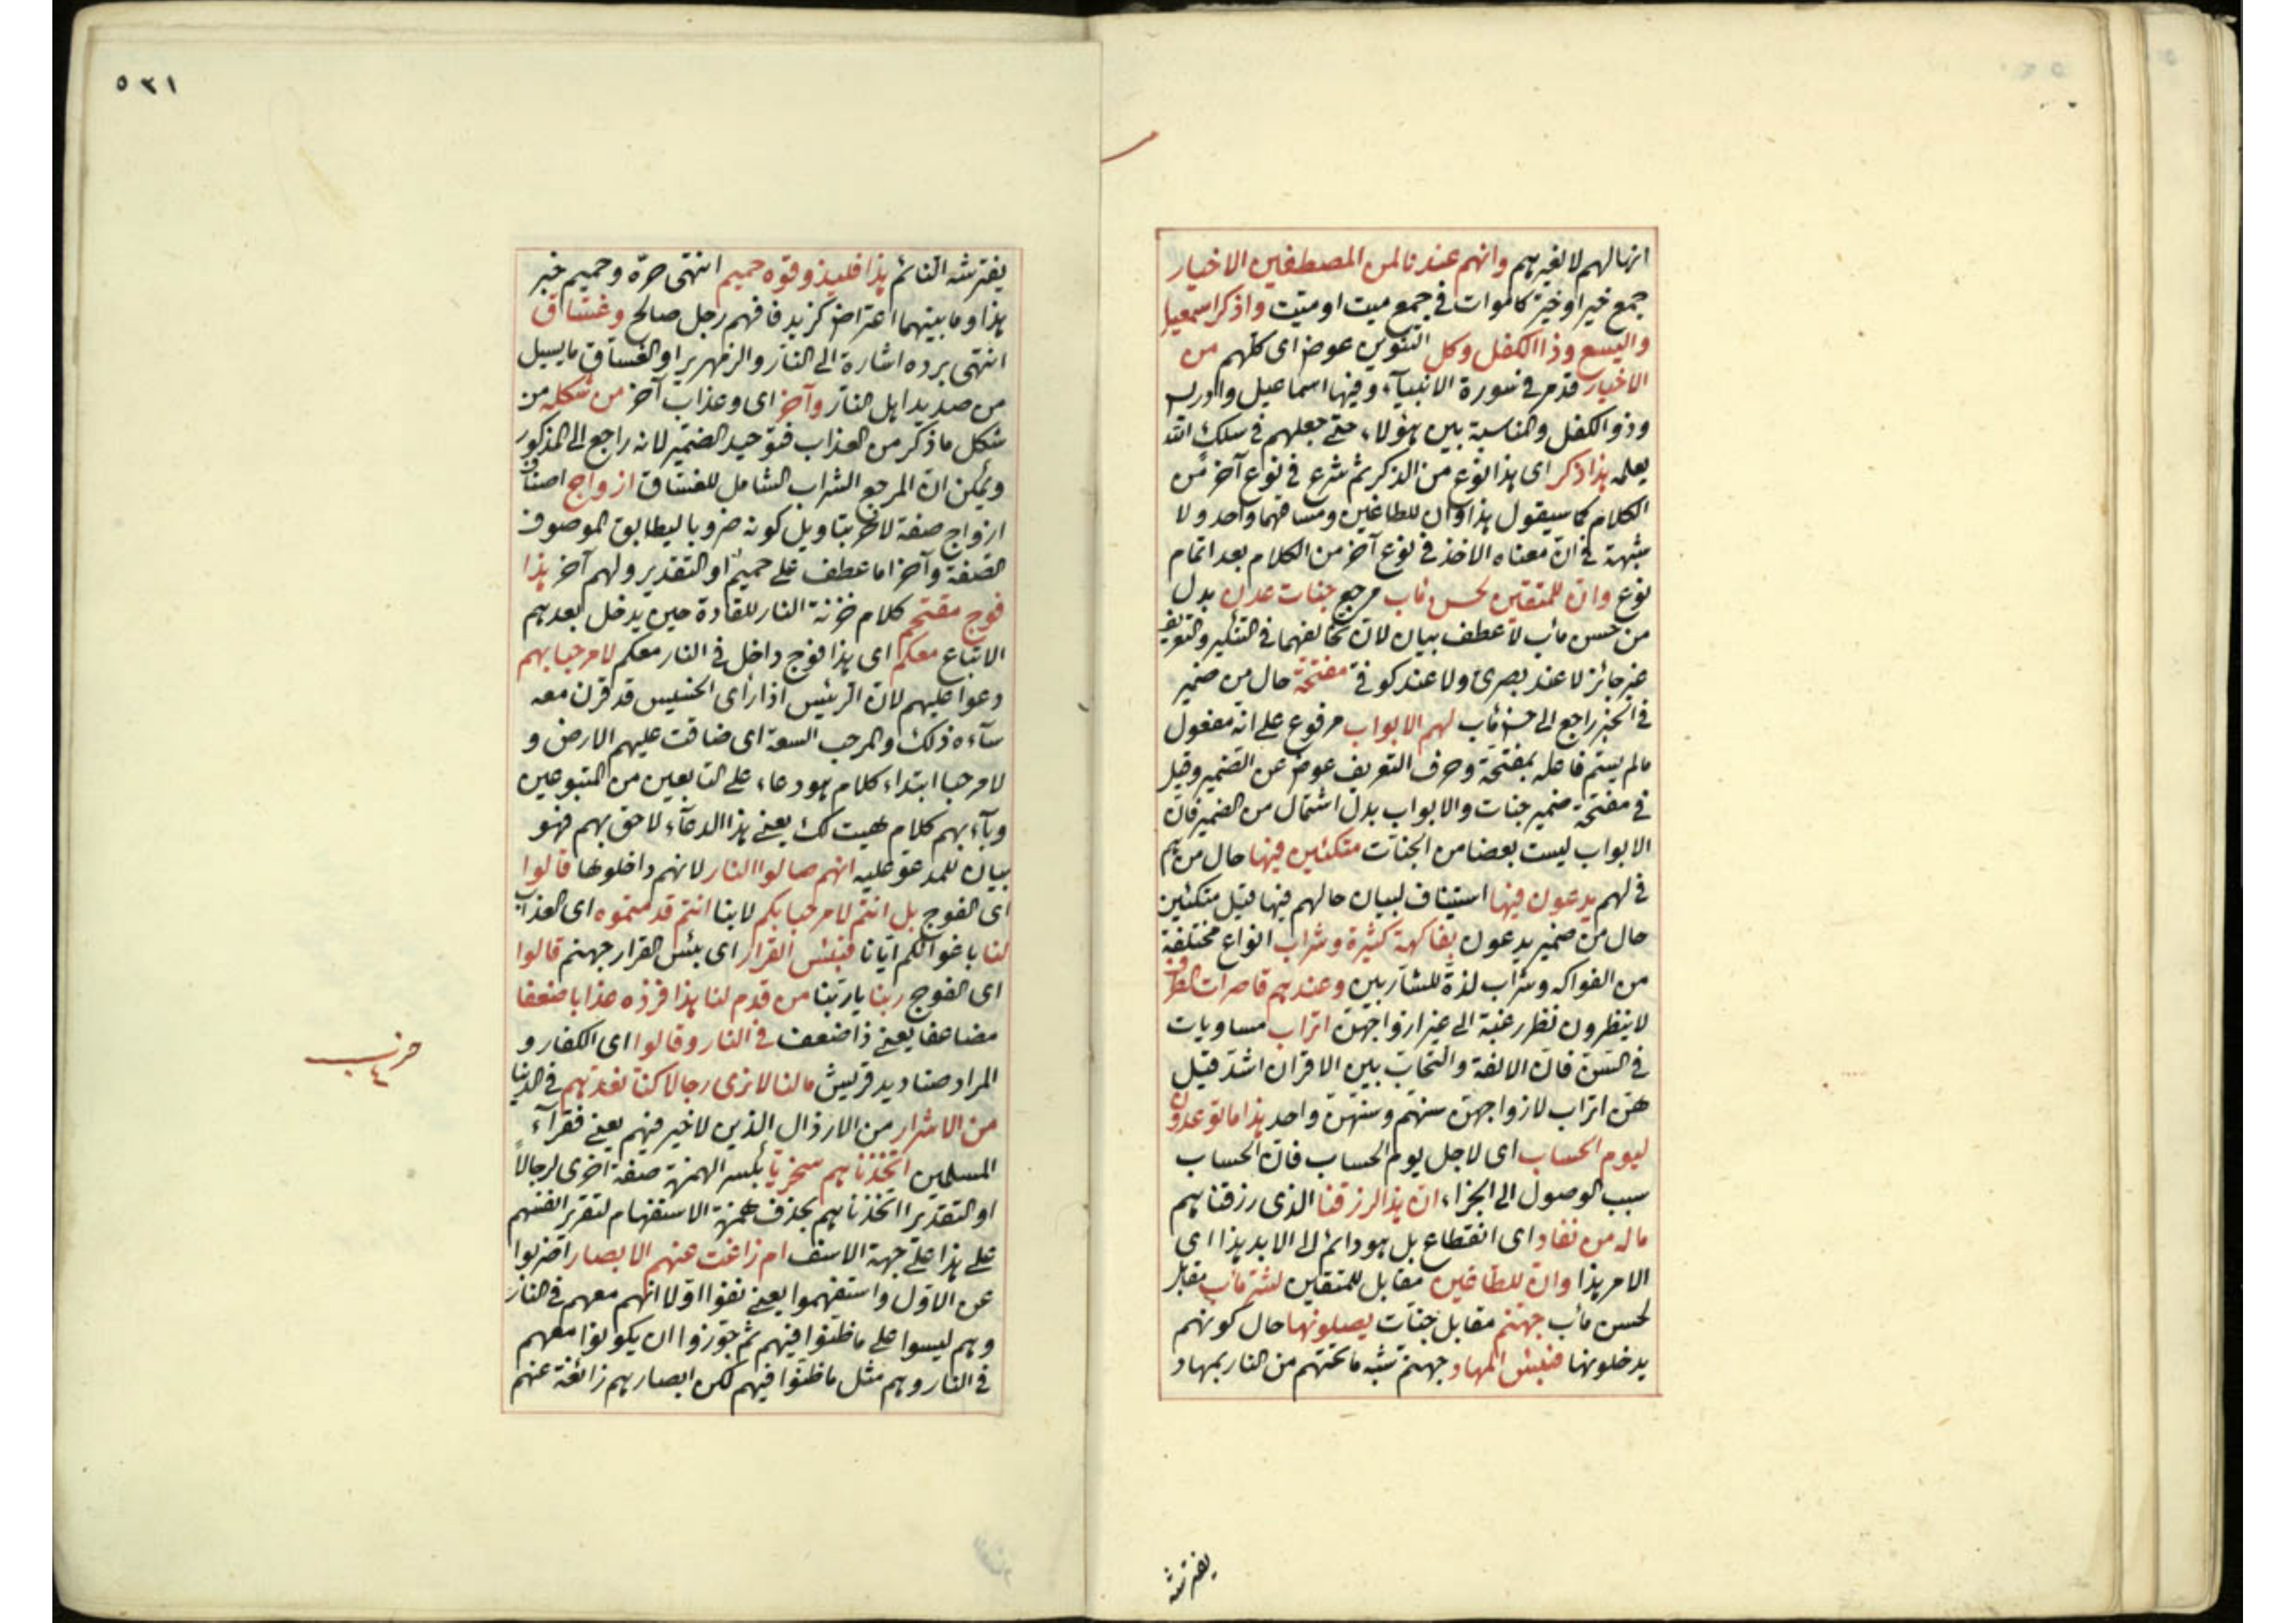 انها لهم لا لغيرهم وانهم عندنا لمن المصطفين الاخيار
جمع خير او خيّر كاموات فى جمع ميت او ميّت واذكر اسمعيل
واليسع وذا الكفل وكل التنوين عوض اى كلهم من
الاخيار قد مر فى سورة الانبيآء وفيها اسماعيل وادريس
وذو الكفل والمناسبة بين هؤلاء حتى جعلهم فى سلك الله
يعلمه هذا ذكر اى هذا نوع من الذكر ثم شرع فى نوع آخر من
الكلام كما سيقول هذا وان للطاغين ومساقهما واحد ولا
شبهة فى ان معناه الاخذ فى نوع آخر من الكلام بعد اتمام
نوع وان للمتقين لحسن مٔاب مرجع جنات عدن بدل
من حسن مٔاب لا عطف بيان لان تخالفهما فى التنكير والتعريف
غير جائز لا عند بصرى ولا عند كوفى مفتحة حال من ضمير
فى الخبر راجع الى حسن مٔاب لهم الابواب مرفوع على انه مفعول
مالم يسم فاعله بمفتحة وحرف التعريف عوض عن الضمير وقيل
فى مفتحة ضمير جنات والابواب بدل اشتمال من الضمير فان
الابواب ليست بعضا من الجنات متكئين فيها حال من هم
فى لهم يدعون فيها استيناف لبيان حالهم فيها قيل متكئين
حال من ضمير يدعون بفاكهة كثيرة وشراب انواع مختلفة
من الفواكه وشراب لذة للشاربين وعندهم قاصرات الطرف
لا ينظرون نظر رغبة الى غير ازواجهن اتراب مساويات
فى السن فان الالفة والتحاب بين الاقران اشد قيل
هن اتراب لازواجهن سنهم وسنهن واحد هذا ما توعدون
ليوم الحساب اى لاجل يوم الحساب فان الحساب
سبب الوصول الى الجزاء ان هذا لرزقنا الذى رزقناهم
ماله من نفاد اى انقطاع بل هو دائم الى الابد هذا اى
الامر هذا وان للطاغين مقابل للمتقين لشر مٔاب مقابل
لحسن مٔاب جهنم مقابل جنات يصلونها حال كونهم
يدخلونها فبئس المهاد جهنم شبه ما تحتهم من النار بمهاد
يفترشه
٥٣١
يفترشه النائم هذا فليذوقوه حميم انتهى حرّه وحميم خبر
هذا وما بينهما اعتراض كزيد فافهم رجل صالح وغساق
انتهى برده اشارة الى النار والزمهرير او الغساق ما يسيل
من صديد اهل النار وآخر اى وعذاب آخر من شكله من
شكل ما ذكر من العذاب فتوحيد الضمير لانه راجع الى المذكور
ويمكن ان المرجع الشراب الشامل للغساق ازواج اصناف
ازواج صفة لاخر بتاويل كونه ضروبا ليطابق الموصوف
الصفة وآخر اما عطف على حميم او التقدير ولهم آخر هذا
فوج مقتحم كلام خزنة النار للقادة حين يدخل بعدهم
الاتباع معكم اى هذا فوج داخل فى النار معكم لا مرحبا بهم
دعوا عليهم لان الرئيس اذا رأى الخسيس قد قرن معه
سآءه ذلك والمرحب السعة اى ضاقت عليهم الارض و
لا مرحبا ابتداء كلام هو دعاء على التابعين من المتبوعين
وبآء بهم كلام هيت لك يعنى هذا الدعآء لاحق بهم فهو
بيان للمدعو عليه انهم صالوا النار لانهم داخلوها قالوا
اى الفوج بل انتم لا مرحبا بكم لا بنا انتم قدمتموه اى العذاب
لنا باغوائكم ايانا فبئس القرار اى بئس القرار جهنم قالوا
اى الفوج ربنا يا ربنا من قدم لنا هذا فزده عذابا ضعفا
مضاعفا يعنى ذا ضعف فى النار وقالوا اى الكفار و
المراد صناديد قريش مالنا لا نرى رجالا كنا نعدهم فى الدنيا
من الاشرار من الارذال الذين لا خير فيهم يعنى فقرآء
المسلمين اتخذناهم سخريّا بكسر الهمزة صفة اخرى لرجالا
او التقدير ااتخذناهم بحذف همزة الاستفهام لتقرير انفسهم
على هذا على جهة الاسف ام زاغت عنهم الابصار اضربوا
عن الاول واستفهموا يعنى نفوا اولا انهم معهم فى النار
وهم ليسوا على ما ظنوا فيهم ثم جوزوا ان يكونوا معهم
فى النار وهم مثل ما ظنوا فيهم لكن ابصارهم زائغة عنهم
حزب